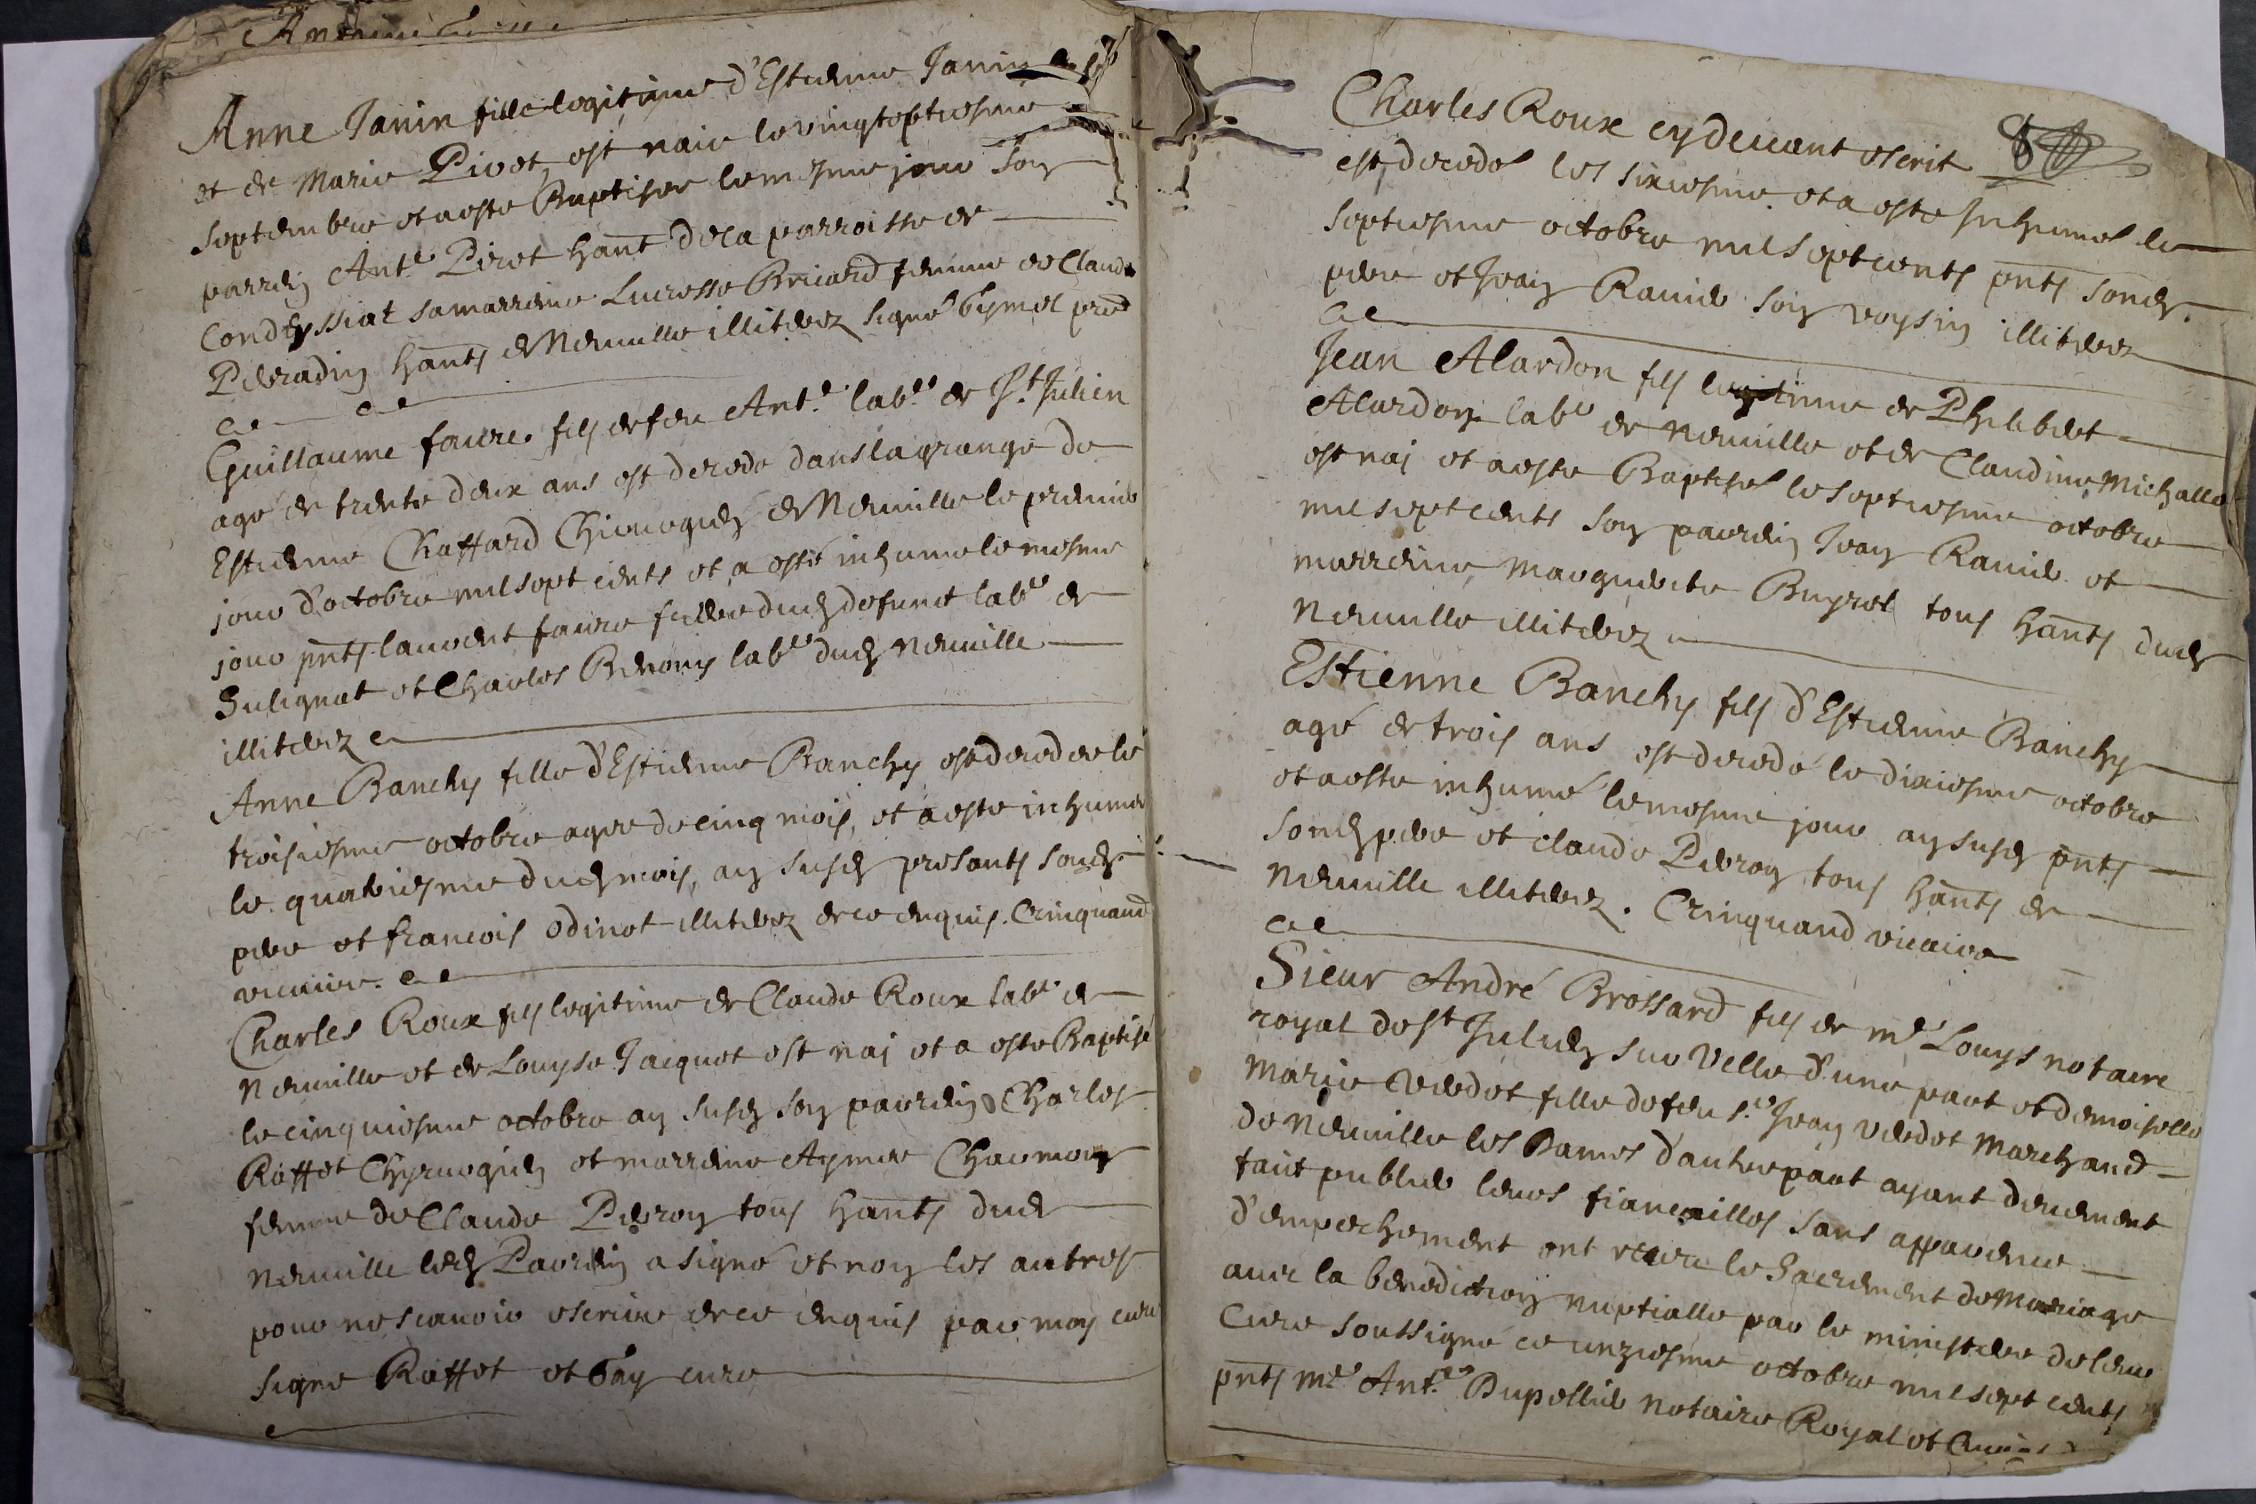 Anne Janin fille legitime d'Estienne Janin
et de Marie Pivot, est naie le vingtseptiesme
septembre et a esté Baptisée le mesme jour son
parrein Ant.e Pirot hant de la parroisse de
Condeyssiat sa marreine Lucresse Brivard femme de Claude
Perradin hants de Neuville illiterez signé
Guillaume faure, fils de feu Ant.e lab.r de St. Julien
agé de trente deux ans est decedé dans la grange de
Estienne Chaffard Chirurgien de Neuville le premier
jour d'octobre mil sept cents et a esté inhumé le mesme
jour pnts laurent faure frere dud defunct lab.r de
Sulignat et Charles Benony lab.r dud Neuville
illiterez
Anne Banchy fille d'Estienne Banchy est decedee le
troisiesme octobre agée de cinq mois, et a esté inhumee
le quatriesme dud mois, an susd presants sond
pere et francois Odinot illiterez de ce enquis. Crinquand
vicaire.
Charles Roux fils legitime de Claude Roux lab.r de
Neuville et de Louyse Jacquet est nai et a esté Baptisé
le cinquiesme octobre an susd son parrein Charles
Raffet Chyrurgien et marreine Aymee Charmon
femme de Claude Perron tous hants dud
Neuville led Parrein a signé et non les autres
pour ne scavoir escrire de ce enquis par moy curé
signé Raffet et curé
Charles Roux cydevant escrit
est decedé les sixiesme et a esté Inhumé le
septiesme octobre mil sept cents pnts sond
pere et Jean Ravier son voysin illiterez
Jean Alardon fils legitime de Philibert
Alardon lab.r de Neuville et de Claudine Michallet
est nai et a esté Baptisé le septiesme octobre
mil sept cents son parrein Jean Ravier et
marreine Marguerite Buyret tous hants dud
Neuville illiterez
Estienne Banchy fils d'Estienne Banchy
agé de trois ans est decedé le dixiesme octobre
et a esté inhumé le mesme jour an susd pnts
sond pere et claude Perron tous hants de
Neuville illiterez. Crinquand vicaire
Sieur André Brossard fils de me Louys notaire
royal de st Julien sur Velle d'une part et demoiselle
Marie Verdet fille de feu s.r Jean Verdet Marchand
de Neuville les Dames d'autre part ayant deuement
fait publier leurs fiancailles sans apparence
d'empechement ont receu le Sacrement de Mariage
avec la benediction nuptialle par le ministere de leur
Curé soussigné ce unziesme octobre mil sept cents
pnts me Ant.e Dupellier Notaire Royal et